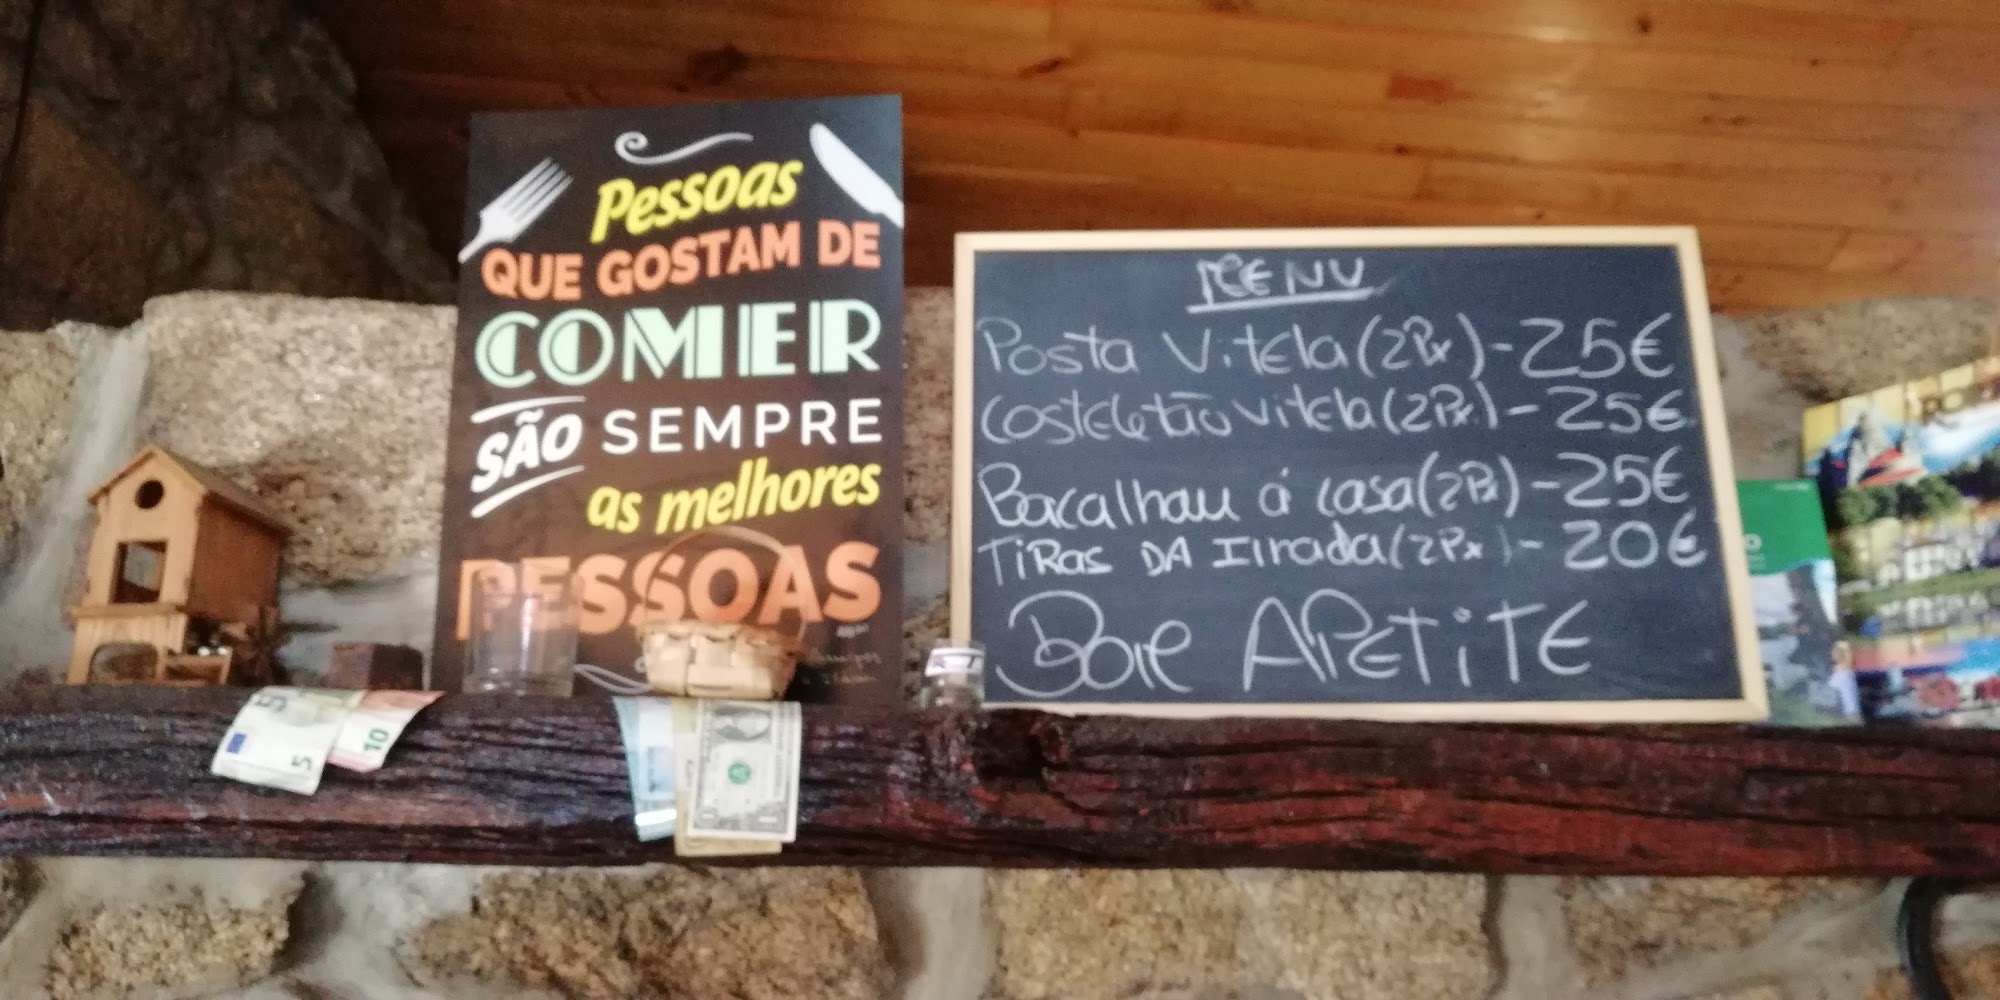 Pessoas
QUE GOSTAM DE
COMER
SÃO SEMPRE
as melhores
PESSOAS
MENU
Posta Vitela (2Px) - 25€
Costeletão vitela (2Px) - 25€
Bacalhau á casa (2Px) - 25€
TiRas DA (2Px) - 20€
APETiTE
5
5
10
1